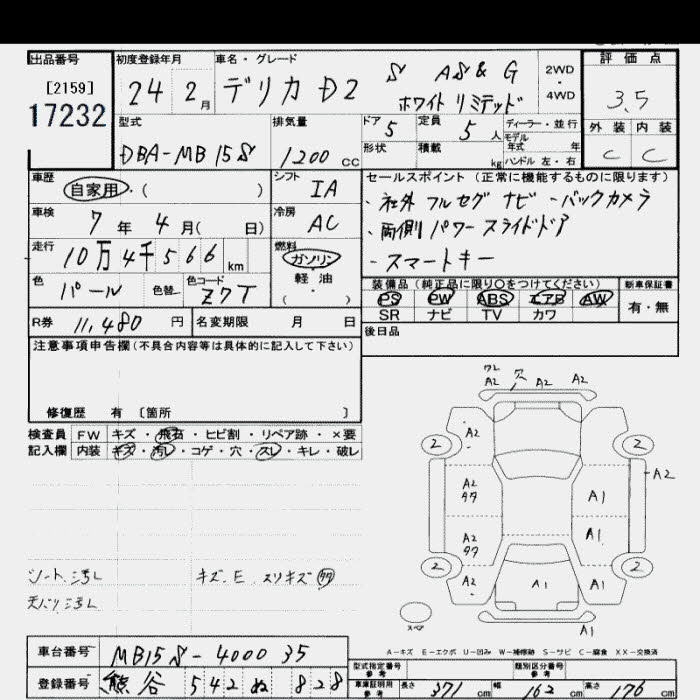 出品番号 初度登録年月 車名・グレード 評価点
[2159] 24 2月 デリカ D2 S AS&G 2WD
17232 ホワイトリミテッド 4WD 3.5
型式 排気量 ドア 5 定員 5人 ディーラー・並行 外装 内装
DBA-MB15S 1200cc 形状 積載 kg モデル年式 年 ハンドル 左・右 C C
車歴 自家用・( ) シフト IA セールスポイント (正常に機能するものに限ります)
車検 7年4月(日) 冷房 AC ・社外 フルセグ ナビ ・バックカメラ
走行 10万4千566km 燃料 ガソリン ・両側パワースライドドア
色 パール 色替 色コード Z7T 軽油 ( ) ・スマートキー
装備品 (純正品に限り○をつけてください) 新車保証書
PS PW ABS エアB AW 有・無
SR ナビ TV カワ
R券 11,480円 名変期限 月 日 後日品
注意事項申告欄(不具合内容等は具体的に記入して下さい)
修復歴 有 〔箇所 〕
検査員 FW キズ・飛石・ヒビ割・リペア跡・×要
記入欄 内装 キズ・汚レ・コゲ・穴・スレ・キレ・破レ
A2 穴 A2 A2
2 A2 2
A2 A2 A1
A2 A1
2 A2 A1 A1 2
スペア A1
シート汚レ キズ、E、スリキズ
天バリ汚レ
A-キズ E-エクボ U-凹み W-補修跡 S-サビ C-腐食 XX-交換済
車台番号 MB15S-400035
登録番号 熊谷 542 ぬ 828
型式指定番号 参考 類別区分番号 参考
車庫証明用 参考 長さ 371cm 幅 162cm 高さ 176cm